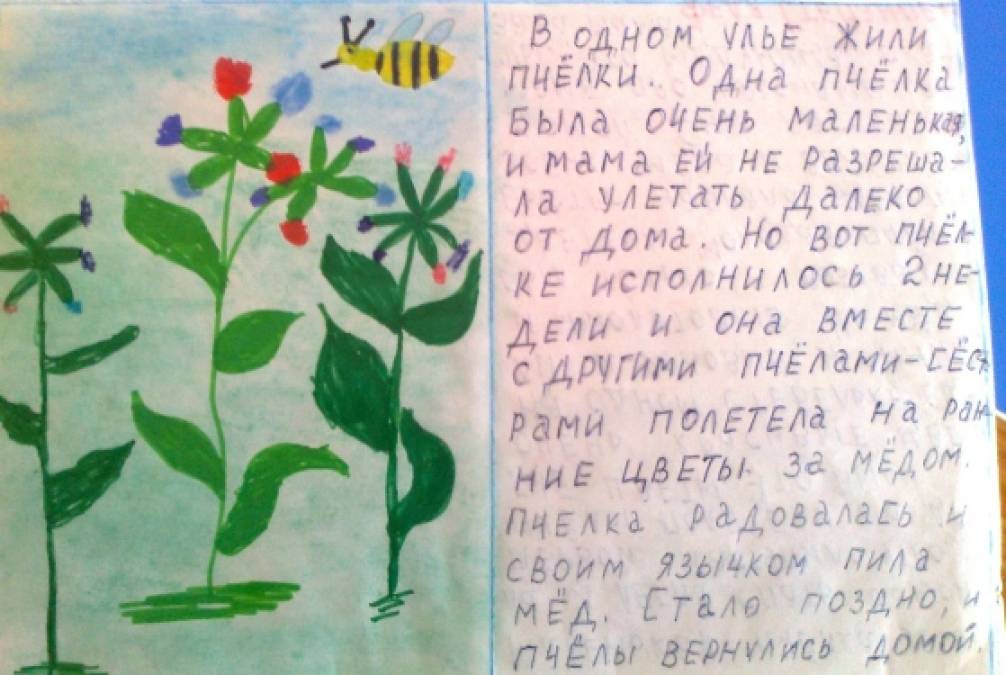 В одном улье жили
пчёлки. Одна пчёлка
была очень маленькая,
и мама ей не разреша-
ла улетать далеко
от дома. Но вот пчёл-
ке исполнилось 2 не-
дели и она вместе
с другими пчёлами-сёст-
рами полетела на ран-
ние цветы за мёдом.
Пчелка радовалась и
своим язычком пила
мёд. Стало поздно, и
пчёлы вернулись домой.